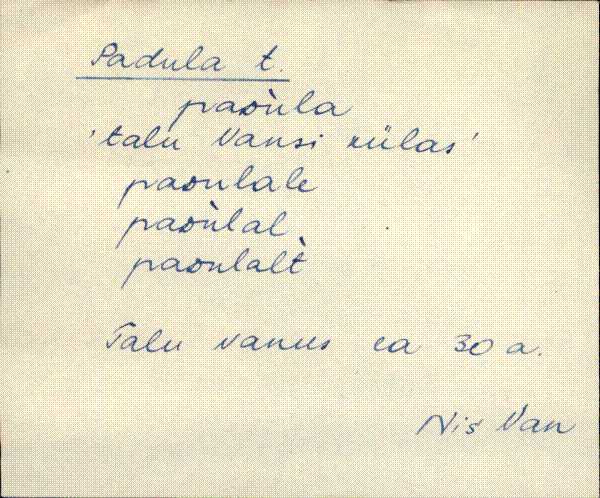 Padula t.
paᴅùla
'talu Vansi külas'
paᴅulale
paᴅùlal
paᴅulalt̀
Talu vanus ca 30 a.
Nis Van